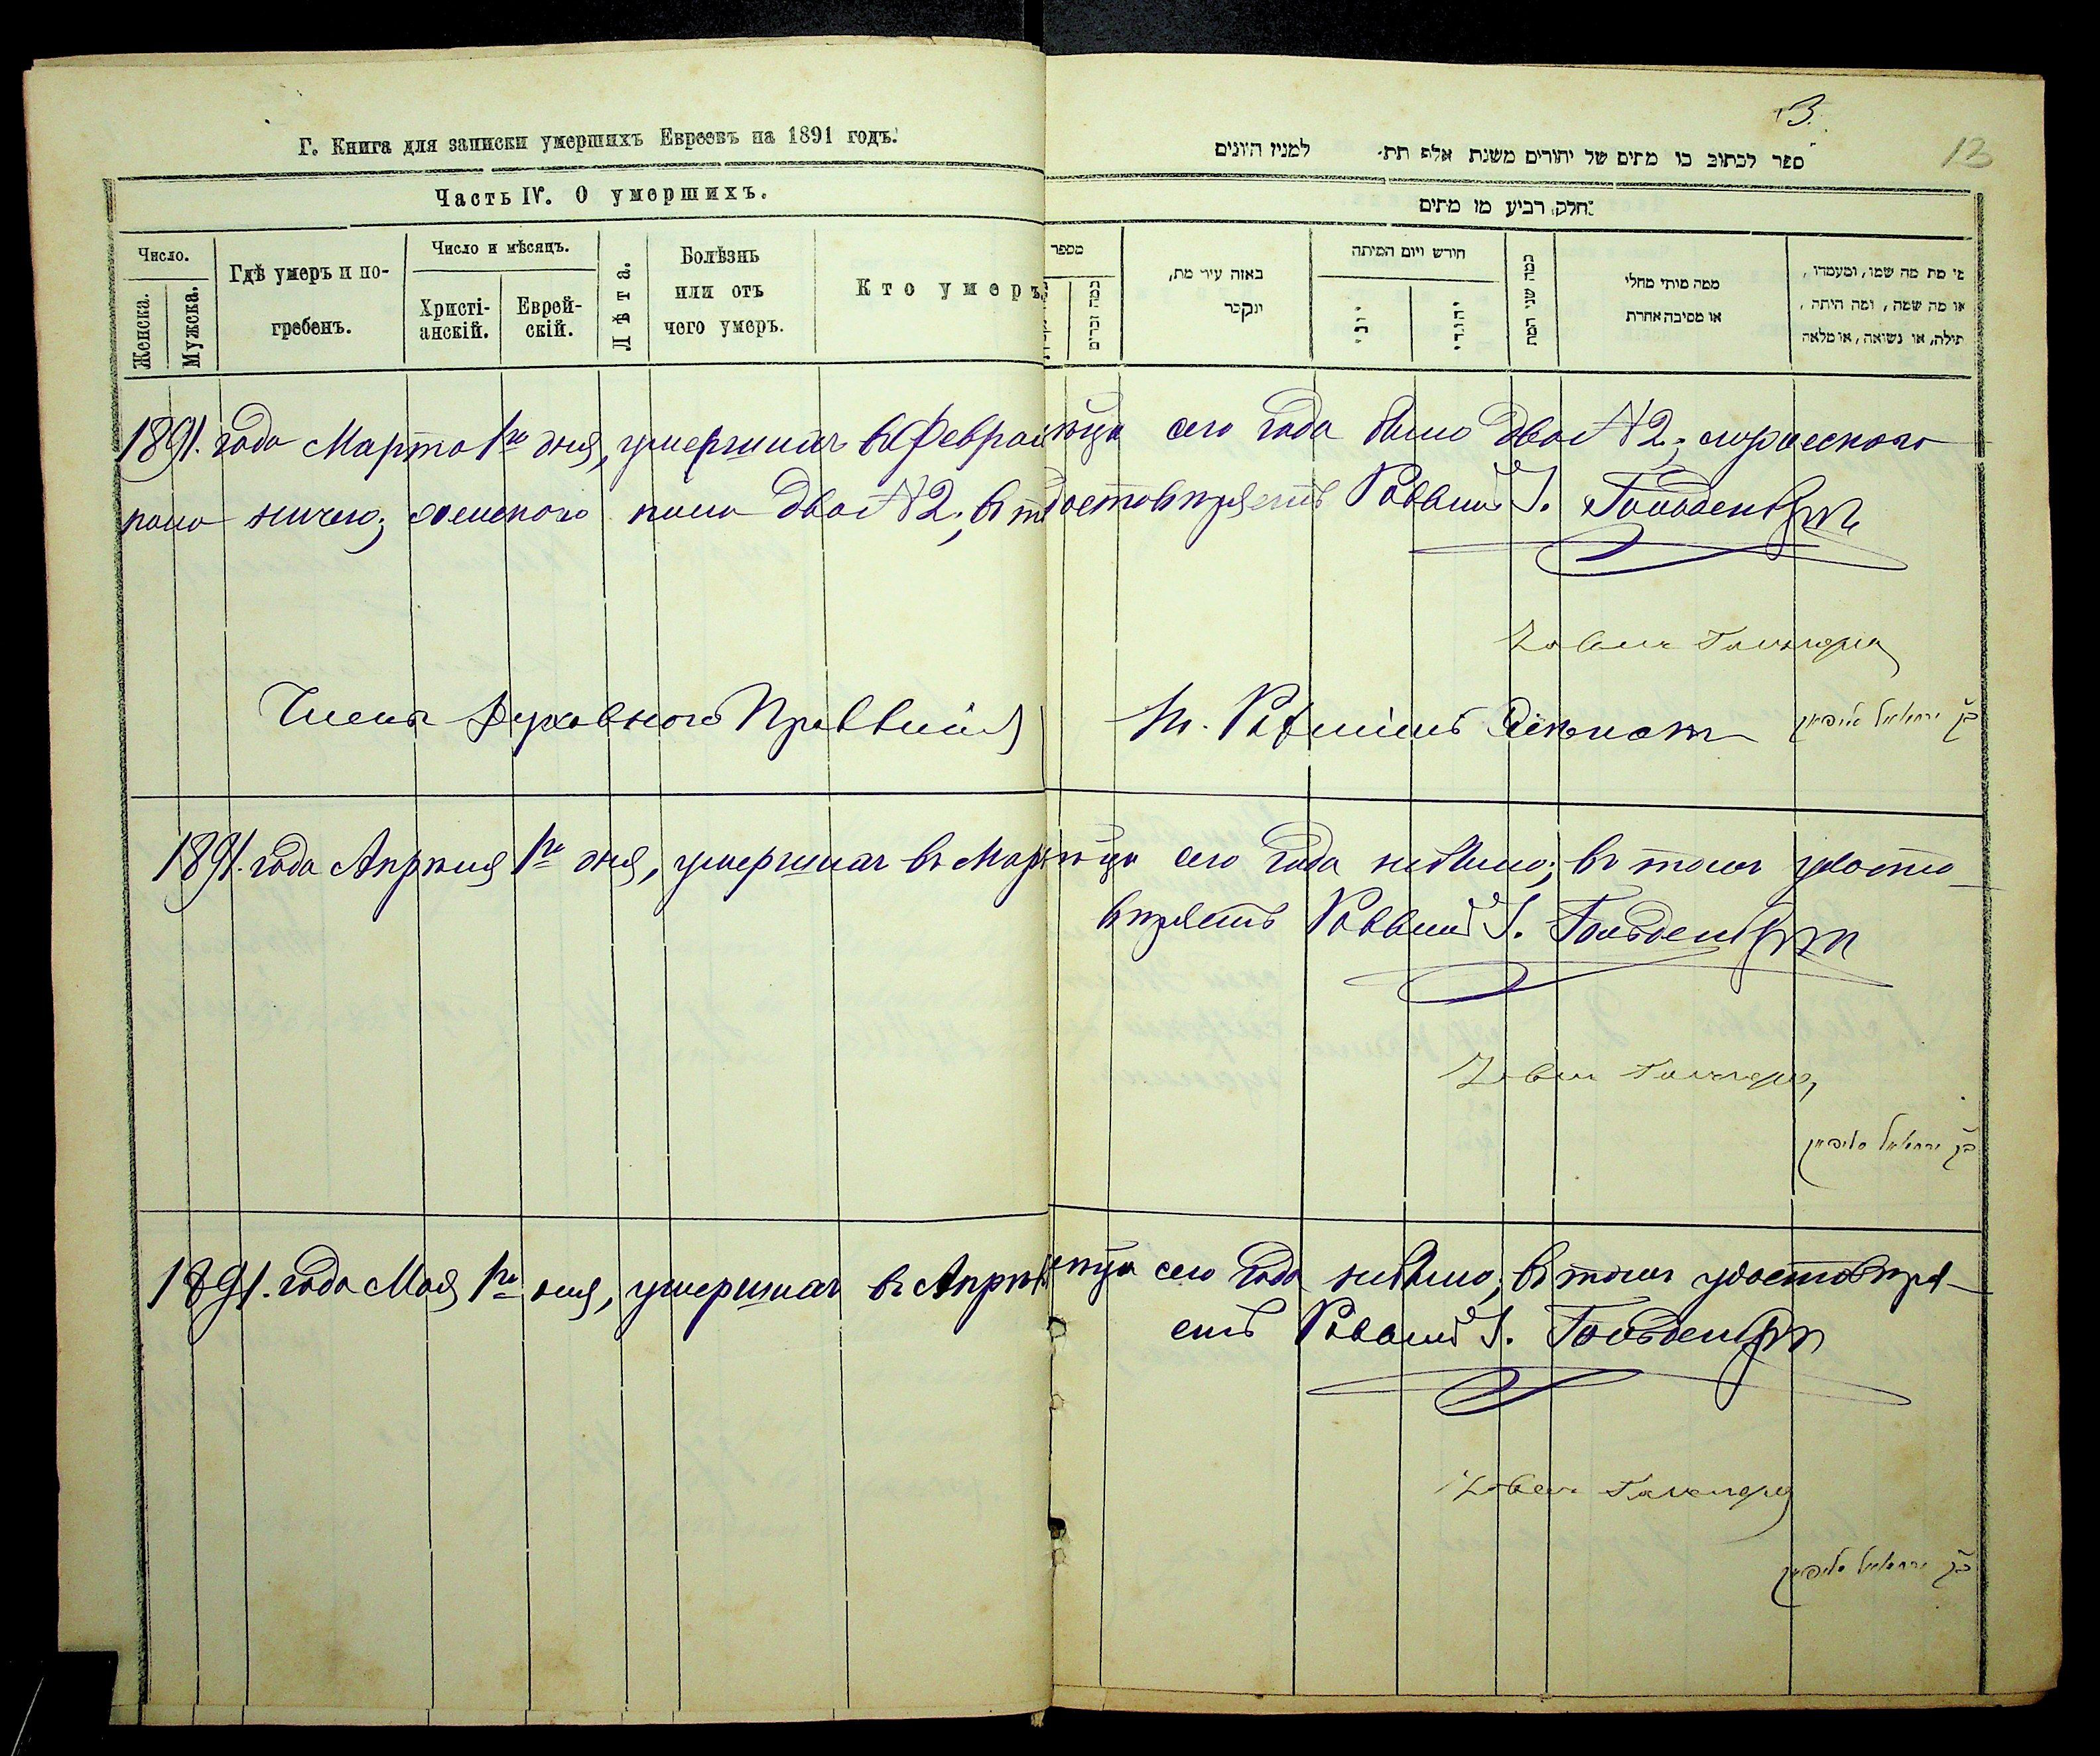 Г. Книга для записки умершихъ Евреевъ на 1891 годъ.
Часть IV. О умершихъ.
Число.
Женска.
Мужска.
Гдѣ умеръ и по-
гребенъ.
Число и мѣсяцъ.
Христі-
анскій.
Еврей-
скій.
Лѣта.
Болѣзнь
или отъ
чего умеръ.
Кто умеръ
3.
13
ספר לכתוב בו מתים של יהודים משנת אלפ תת׳ למניז היונים
חלק רביע מו מתים
מספר
כמה זכרים
באזה עיר מת,
ונקבר
חודש ויום המיתה
יוני
יהודי
כמה שני המת
ממה מותי מחלי
או מסיבה אחרת
מי מת מה שמו, ומעמדו,
או מה שמה, ומה היתה,
תילה, או נשואה, או מלאה
1891. года Марта 1го дня, умершихъ въ Феврал мцѣ сего года было двое №2; мужескаго
пола ничего; женскаго пола двое №2; въ т достовѣряетъ Раввинъ
Члены Духовнаго Правленія
1891. года Апрѣля 1го дня, умершихъ въ Мар мцѣ сего года небыло; въ томъ удосто-
вѣряетъ Раввинъ
1891. года Мая 1го дня, умершихъ въ Апрѣл мцѣ сего года небыло; въ томъ удостовѣря-
етъ Раввинъ